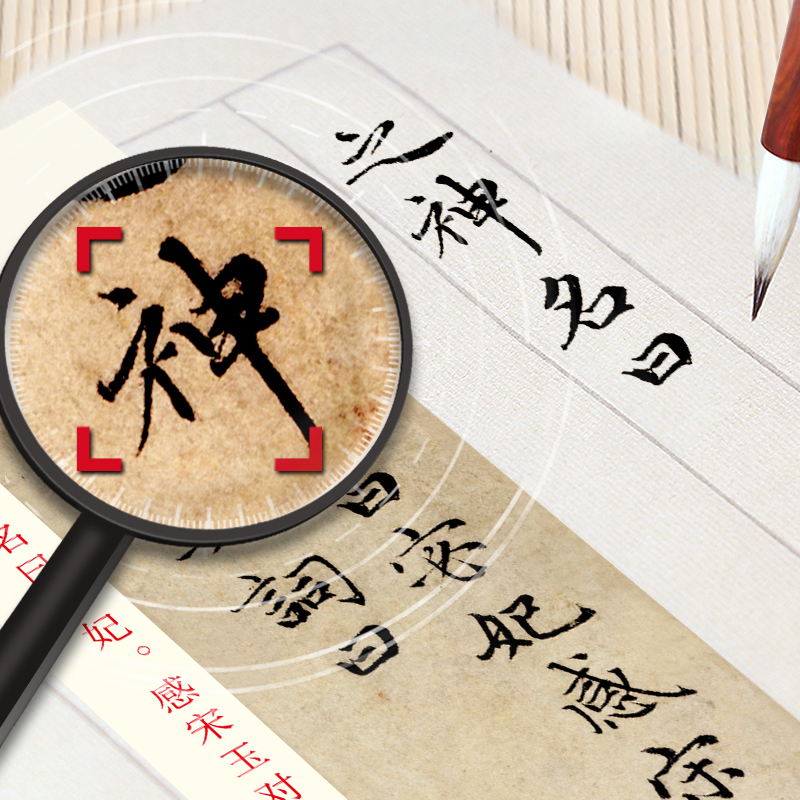 之神名曰
神
曰宓妃感宋
詞曰
名曰
妃。感宋玉对